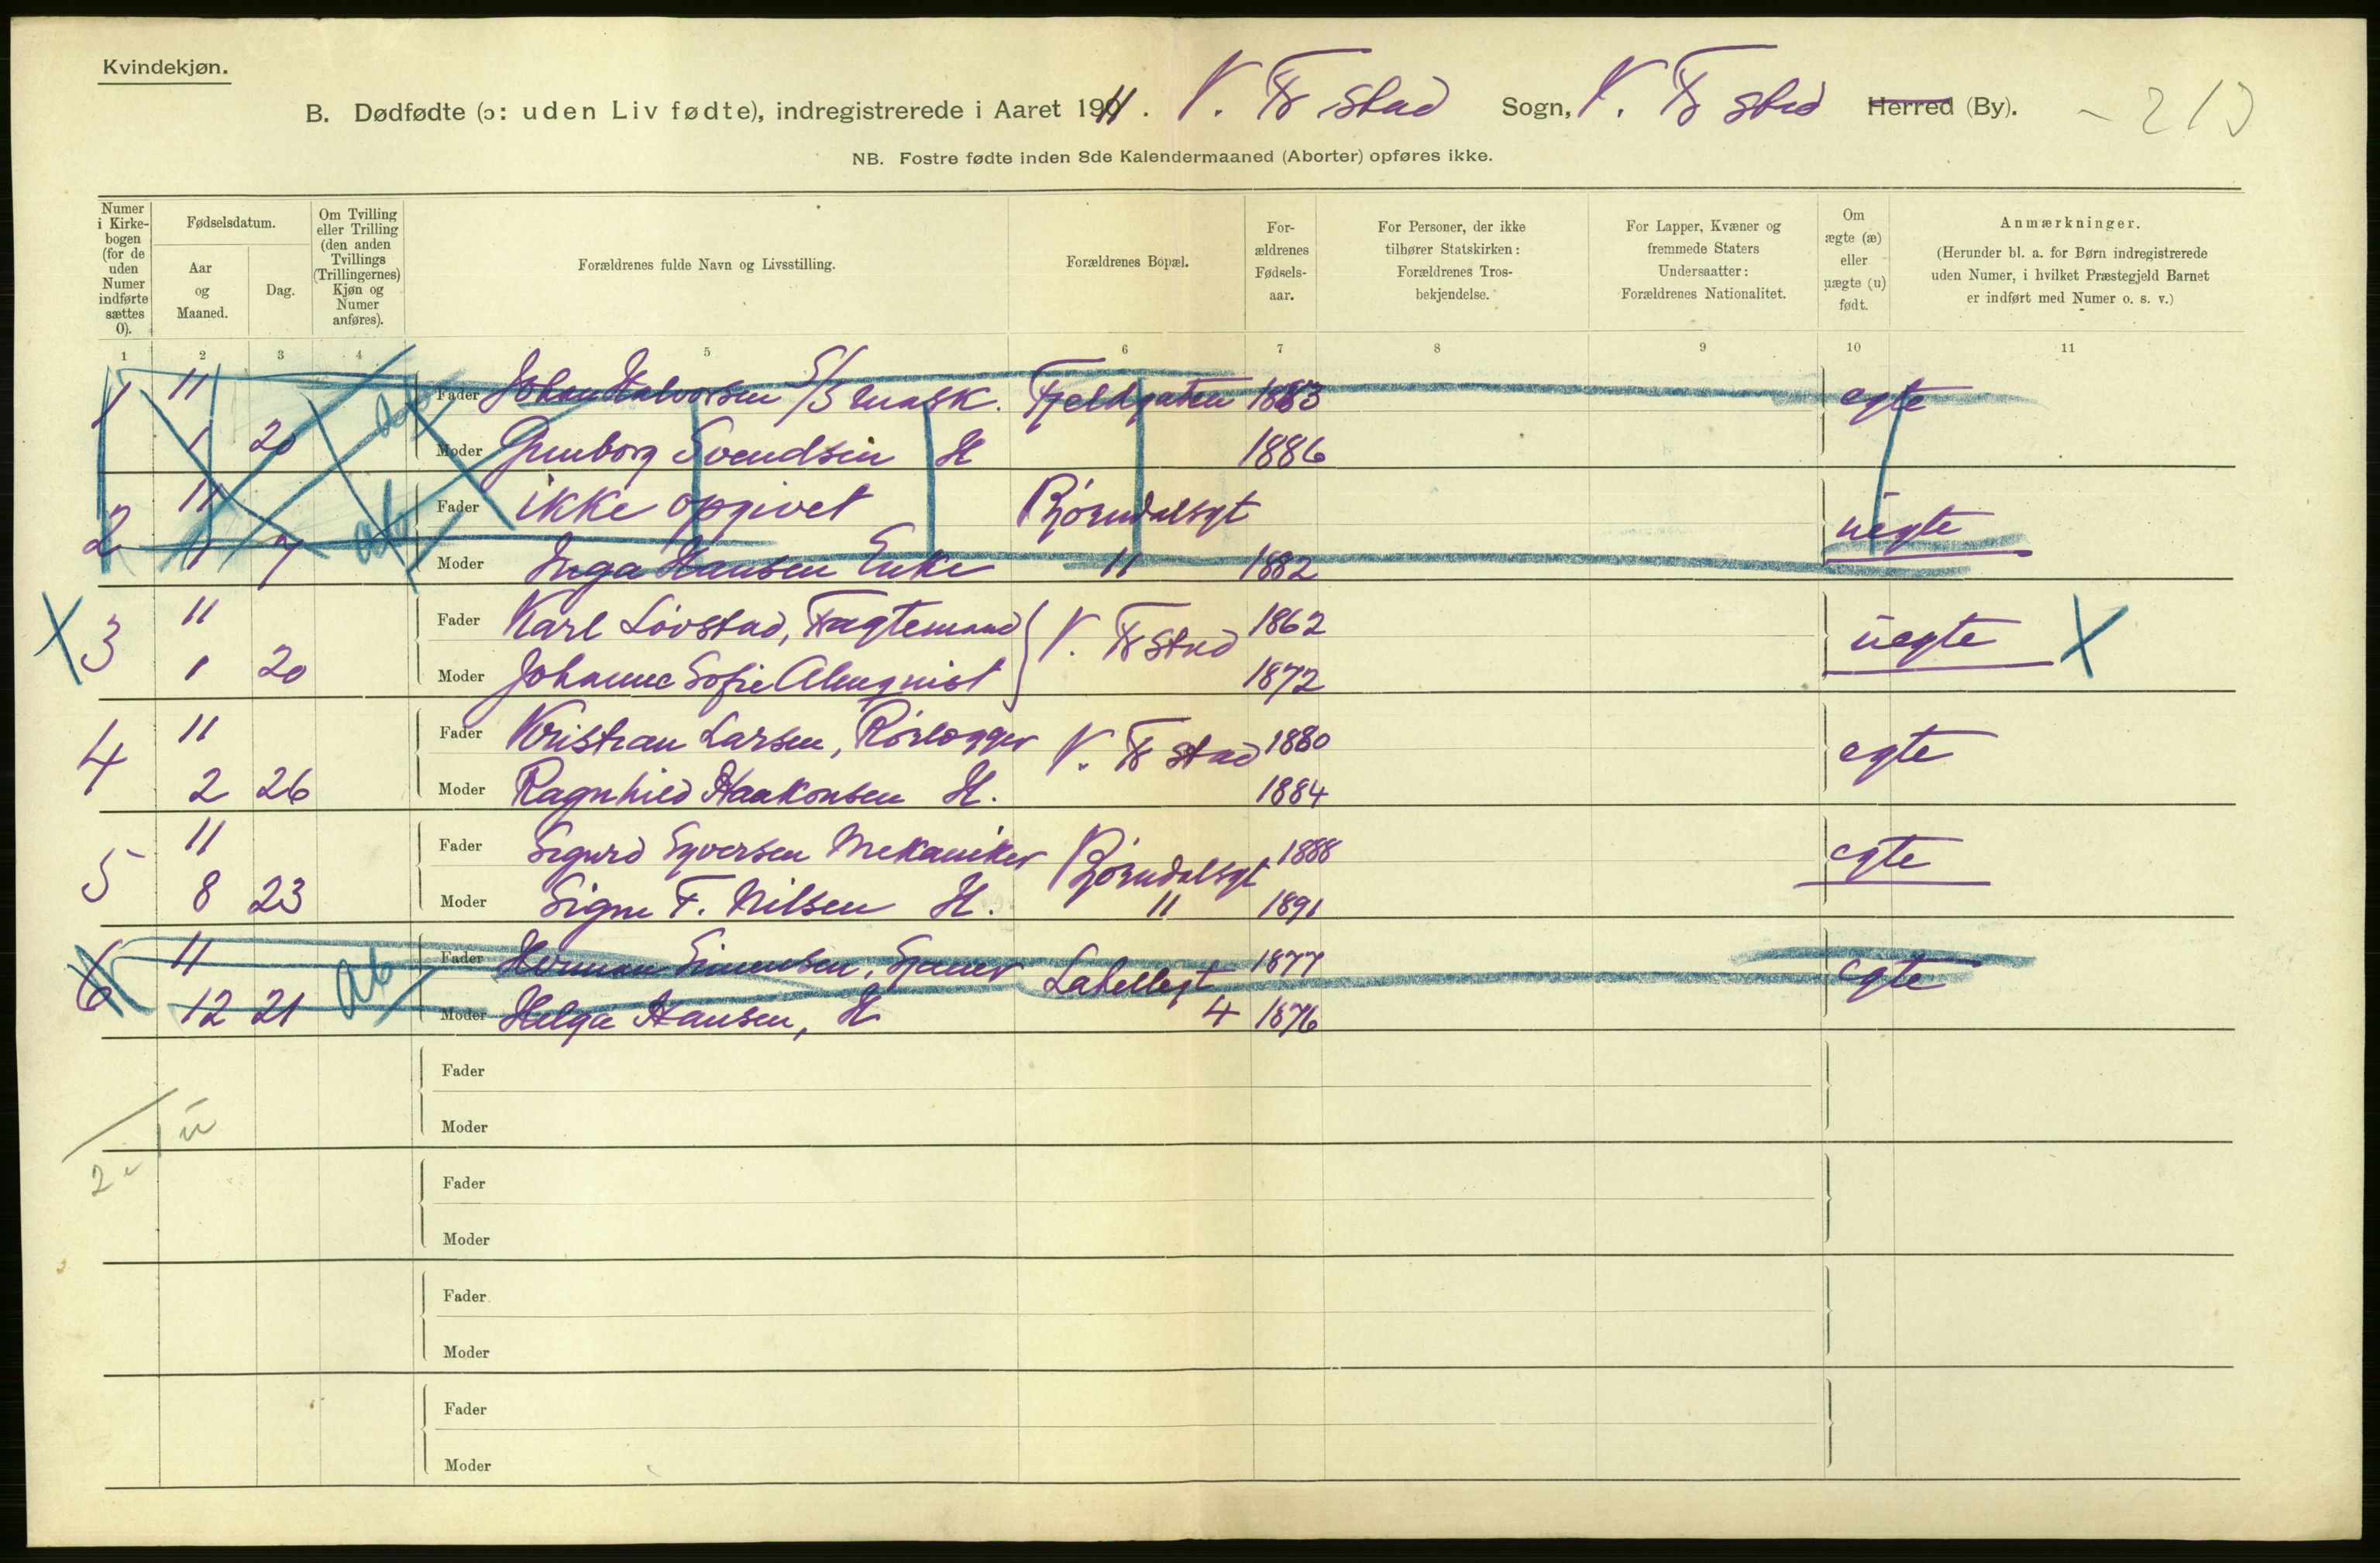 Kvindekjøn.
B. Dødfødte (ɔ: uden Liv fødte), indregistrerede i Aaret 1911. V. Fr stad Sogn, V. Fr stad Herred (By). - 213
NB. Fostre fødte inden 8de Kalendermaaned (Aborter) opføres ikke.
Numer i Kirkebogen (for de uden Numer indførte sættes 0).
Fødselsdatum.
Aar og Maaned.
Dag.
Om Tvilling eller Trilling (den anden Tvillings (Trillingernes) Kjøn og Numer anføres).
Forældrenes fulde Navn og Livsstilling.
Forældrenes Bopæl.
For-ældrenes Fødsels-aar.
For Personer, der ikke tilhører Statskirken: Forældrenes Tros-bekjendelse.
For Lapper, Kvæner og fremmede Staters Undersaatter: Forældrenes Nationalitet.
Om ægte (æ) eller uægte (u) født.
Anmærkninger.
(Herunder bl. a. for Børn indregistrerede uden Numer, i hvilket Præstegjeld Barnet er indført med Numer o. s. v.)
1 2 3 4 5 6 7 8 9 10 11
1 11 Fader Johan Halvorsen S/S mask. Fjeldgaten 1883 egte
1 20 Moder Gunborg Svendsen H 1886
2 11 ab Fader ikke opgivet Bjørndalsgt uegte
1 7 Moder Inga Hansen Enke " 1882
X 3 11 Fader Karl Lövstad, Fragtemand V. Fr stad 1862 uegte X
1 20 Moder Johanne Sofie Almqvist 1872
4 11 Fader Kristian Larsen, Rörlegger V. Fr stad 1880 egte
2 26 Moder Ragnhild Haakonsen H. 1884
5 11 Fader Sigurd Syversen Mekaniker Bjørndalsgt 1888 egte
8 23 Moder Signe F. Nilsen H. " 1891
6 11 ab Fader Herman Simensen, 1877 egte
12 21 Moder Helga Hansen, H 4 1876
Fader
Moder
ü
2
Fader
Moder
Fader
Moder
Fader
Moder